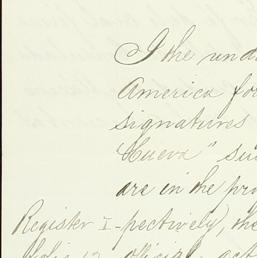 I the und
America fo
signatures
"Cueva" su
are in the pro
Register I - pectively), the
folio 12, official act